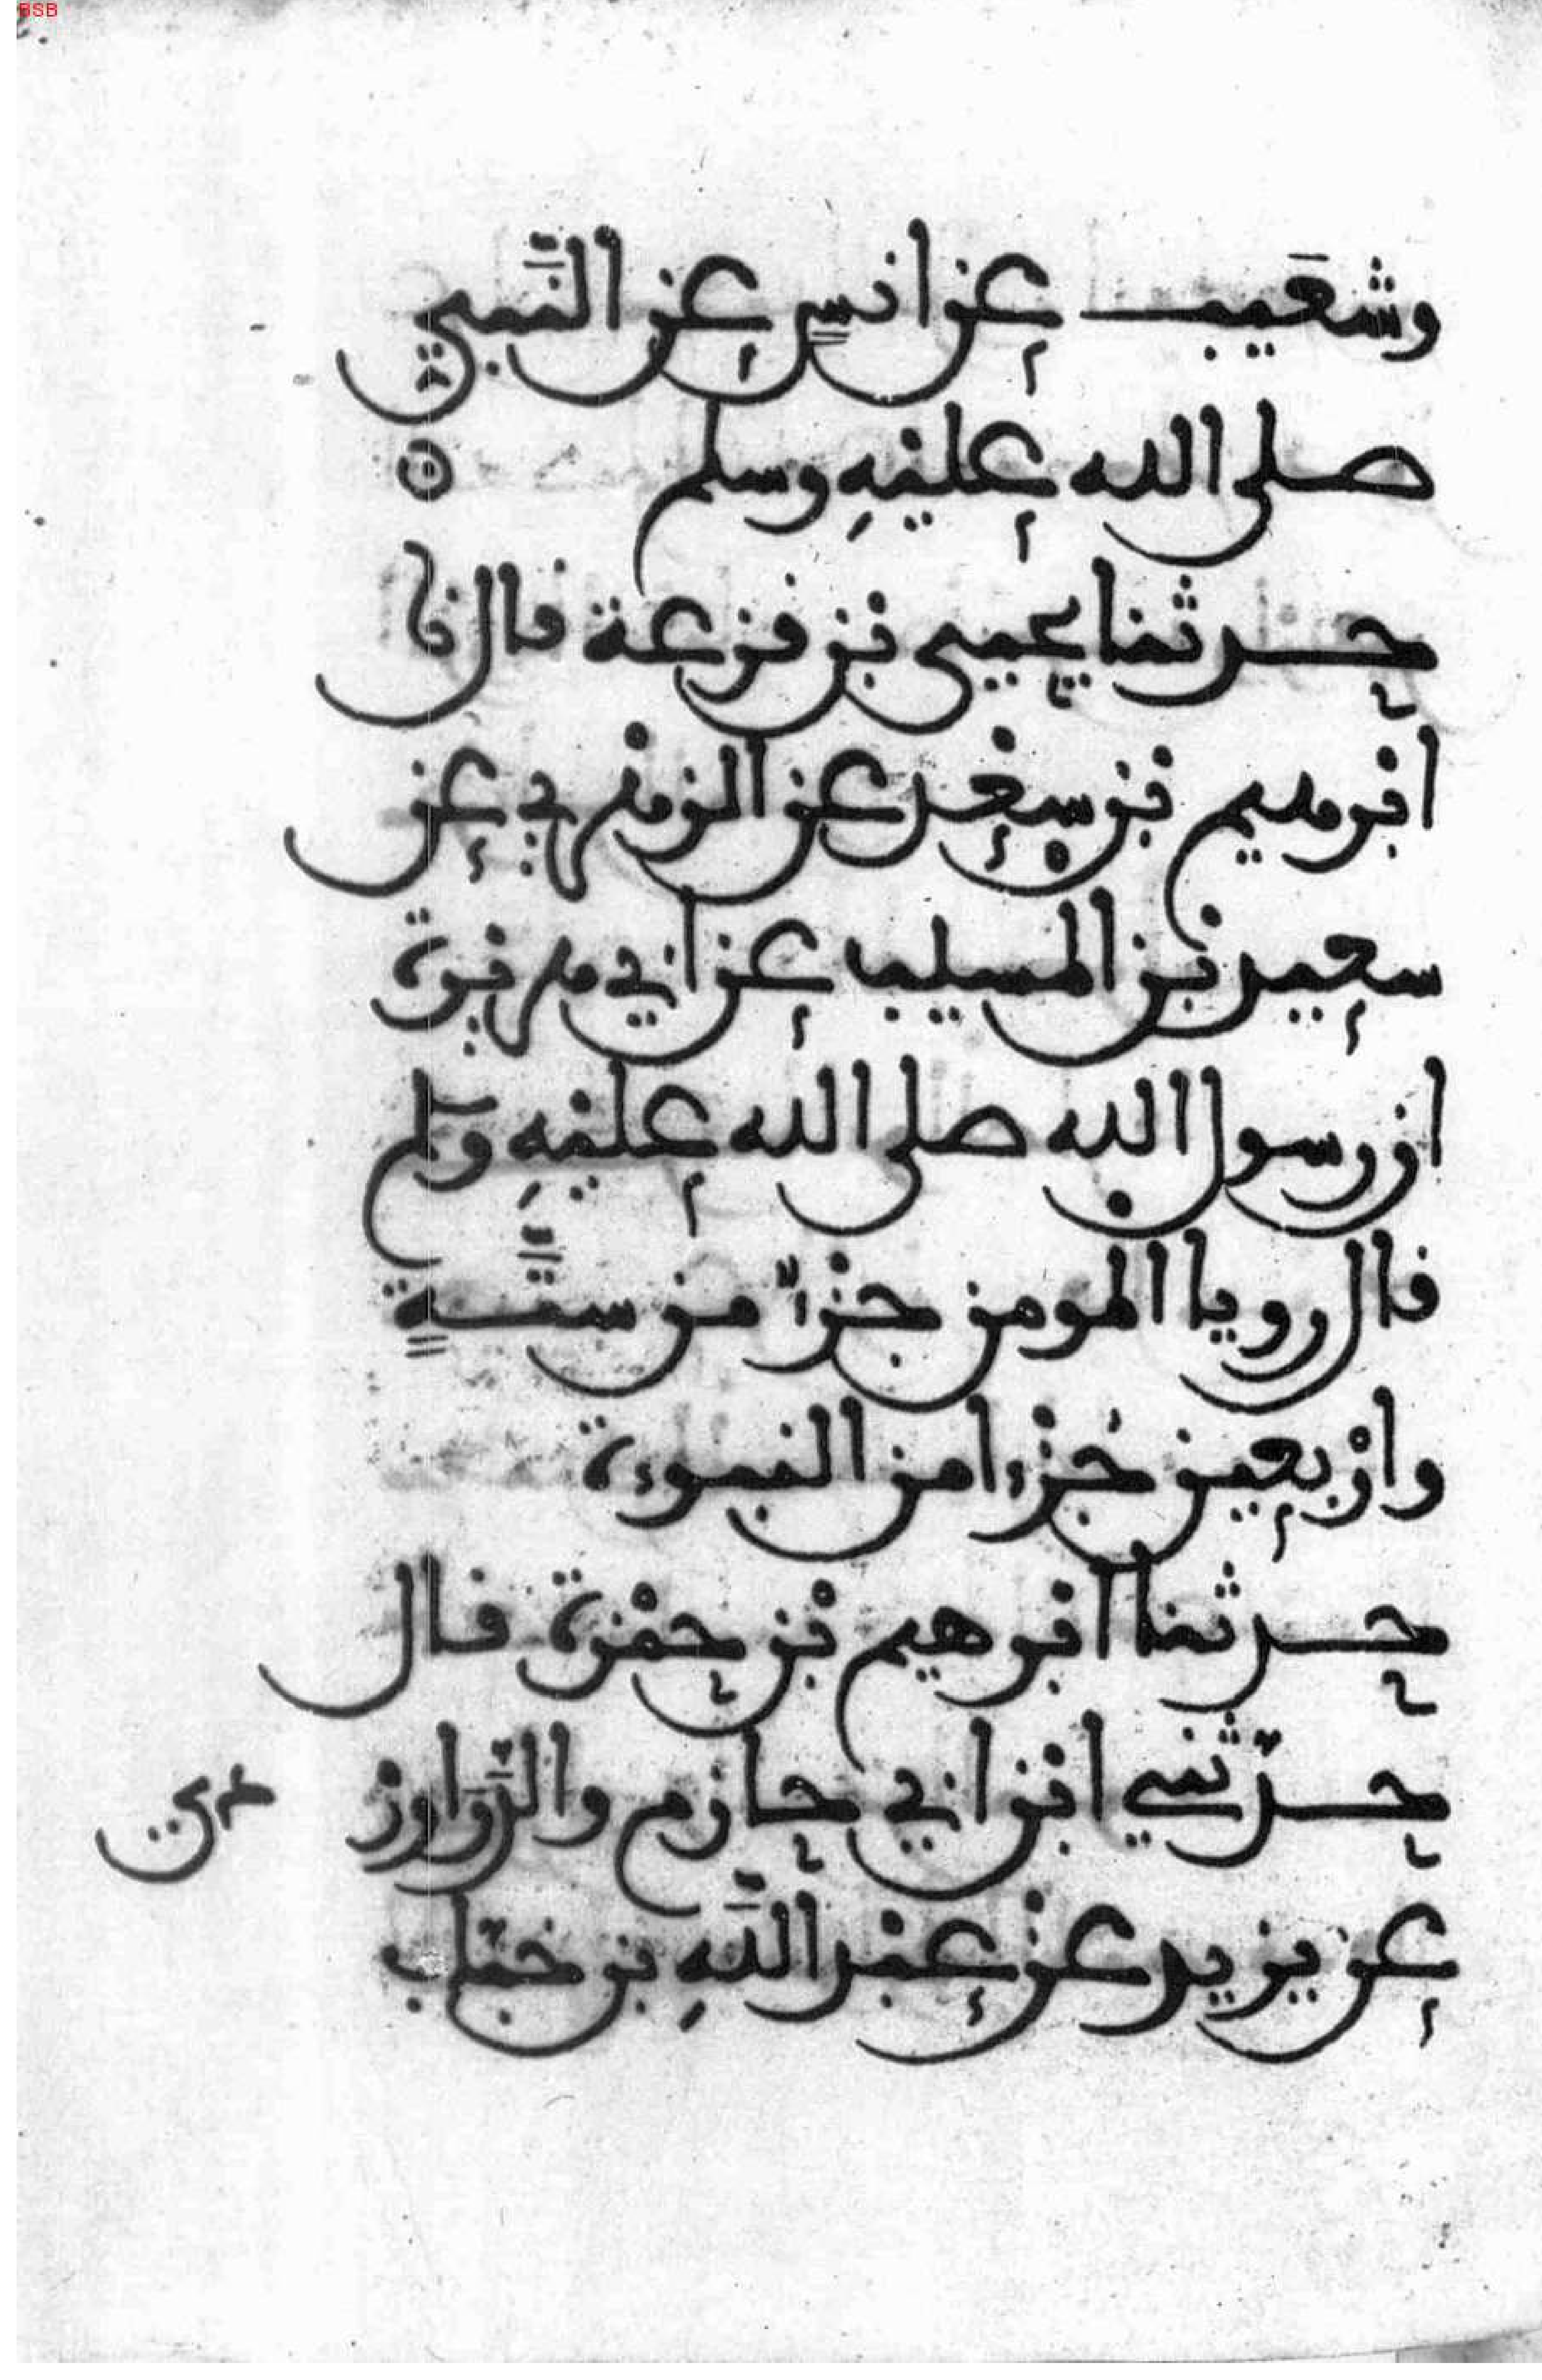 BSB
وشعَيب عن انسٍ عن النَّبيّ
صلى الله عليهِ وسلم ه
حدثنا يحيى بن قزعة قال نا
ابرهيم بن سعْد عن الزهْري عن
سعيد بن المسيب عن ابي هريرة
ان رسول الله صلى الله عليهِ وسلم
قال رويا المومن جزْءٌ من ستَّةٍ
وارْبعين جُزْءا من النبوءة
حدثنا ابرهيم بْن حمْزة قال
حدّثني ابن ابي حازم والدَّرَاورْ
دي
عن يزيد عن عبْد اللَّهِ بن خبّاب